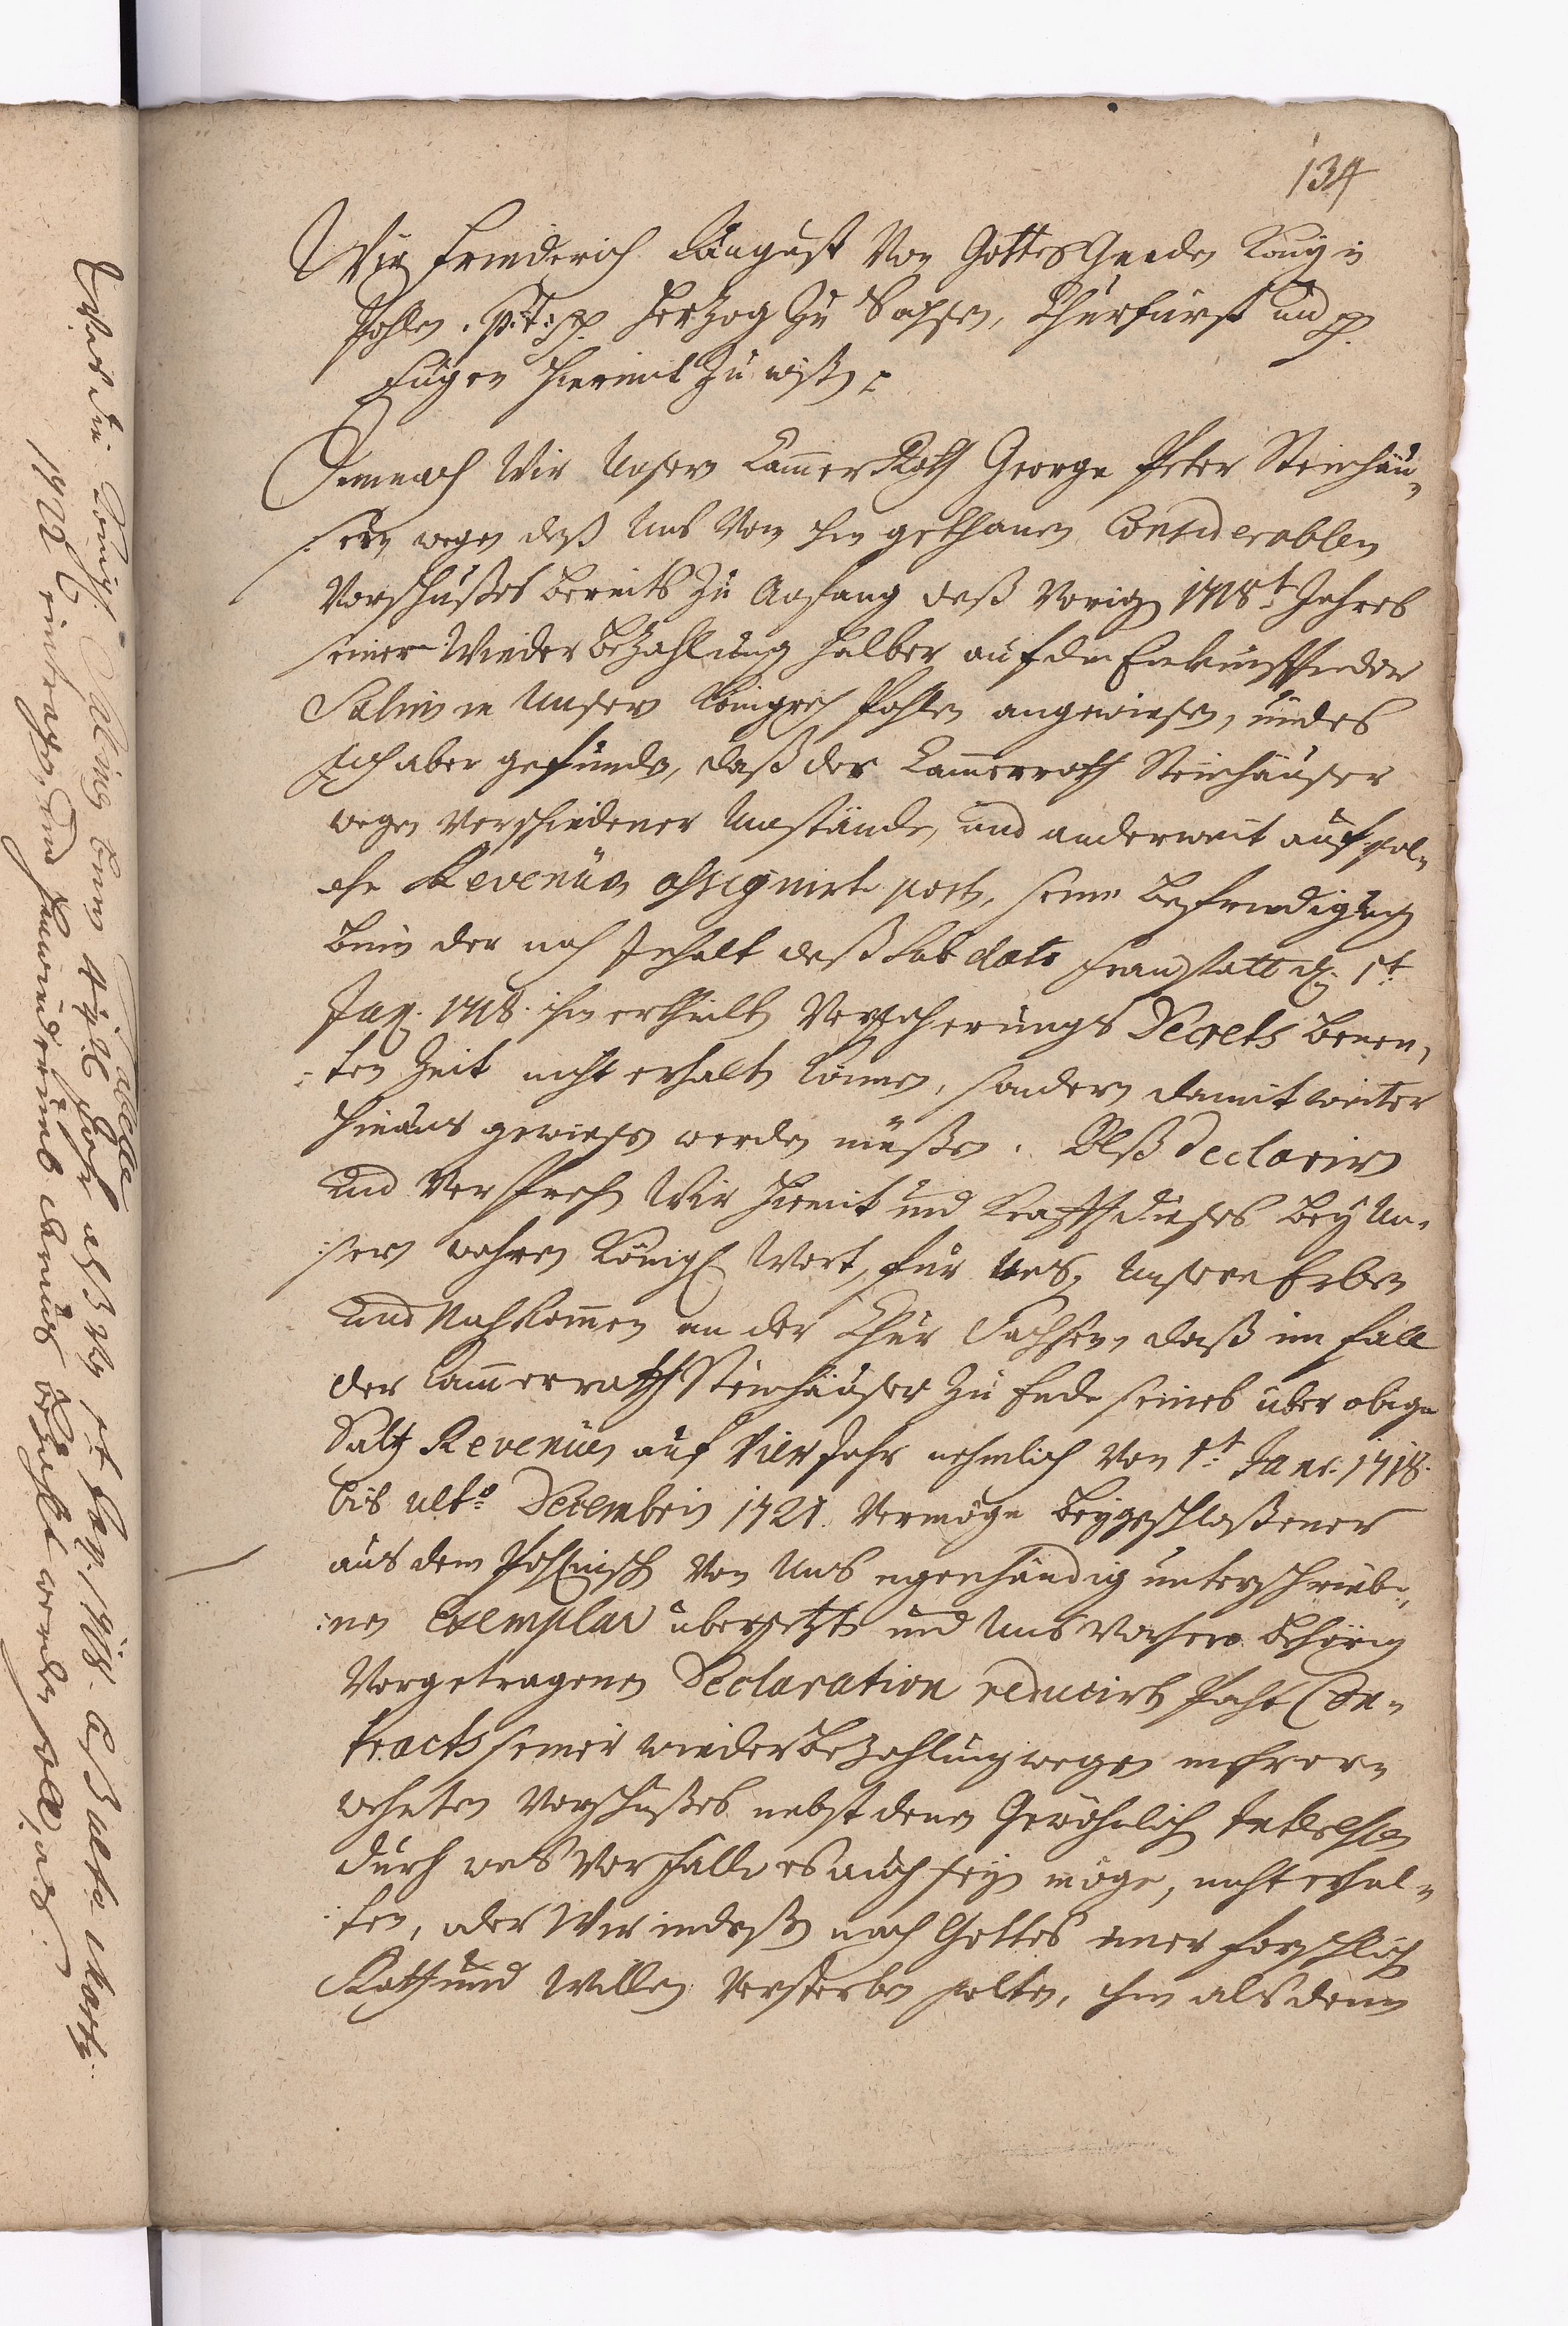 134
Wir Friederich August Von Gottes Gnaden König in
Pohlen. p. T. pp. Herzog Zu Sachßen, Churfürst und pp.
Fügen hiermit Zu wißen.
Demnach Wir Unsern Cammer Rath George Peter Steinhäu-
sern wegen deß Uns Von ihm gethanen Considerablen
Vorschußes bereits Zu Anfang deß Vorigen 1718t. Jahres
seiner Wieder Bezahlung halber auf die Einkünffte der
Salinen Unsers Königreich Pohlen angewiesen, indes
sich aber gefunden, daß der Cammerrath Steinhäuser
wegen Verschiedener Umstände, und anderweit auf sol-
che Revenüen assignirte post, seine Befriedigung
Binnen der nach Inhalt deß sub dato Fraustatt d. 1t.
Jan. 1718. ihm ertheilten Versicherungs Decrets benen-
ten Zeit nicht erhalten können, sondern damit weiter
hinaus gewiesen werden müßen. Alß declariren
und Versprechen Wir hiermit und Krafft dieses bey Un-
sern wahren Königl. Wort, für Uns, Unsere Erben
und Nachkommen an der Chur Sachsen, daß im Fall
der Cammerrath Steinhäuser zu Ende seines über obige
Saltz Revenüen auf Vier Jahr nehmlich Von 1t. Janr. 1718.
bis ulto. Decembris 1721. Vermöge beygeschloßener
aus dem Pohlnischen Von Uns eigenhändig unterschriebe-
nen Exemplar übersetzten und Uns
Vorgetragenen Declaration reducirten Pacht Con-
tracts seiner wieder Bezahlung wegen mehrer-
wehnten Vorschußes nebst denen Gewöhnlichen Interessen
durch was Vorfälle es auch seyn möge, nicht erhal-
ten, oder Wir indeßen nach Gottes unerforschlichen
Rath und Willen Versterben solten, ihm alsdenn